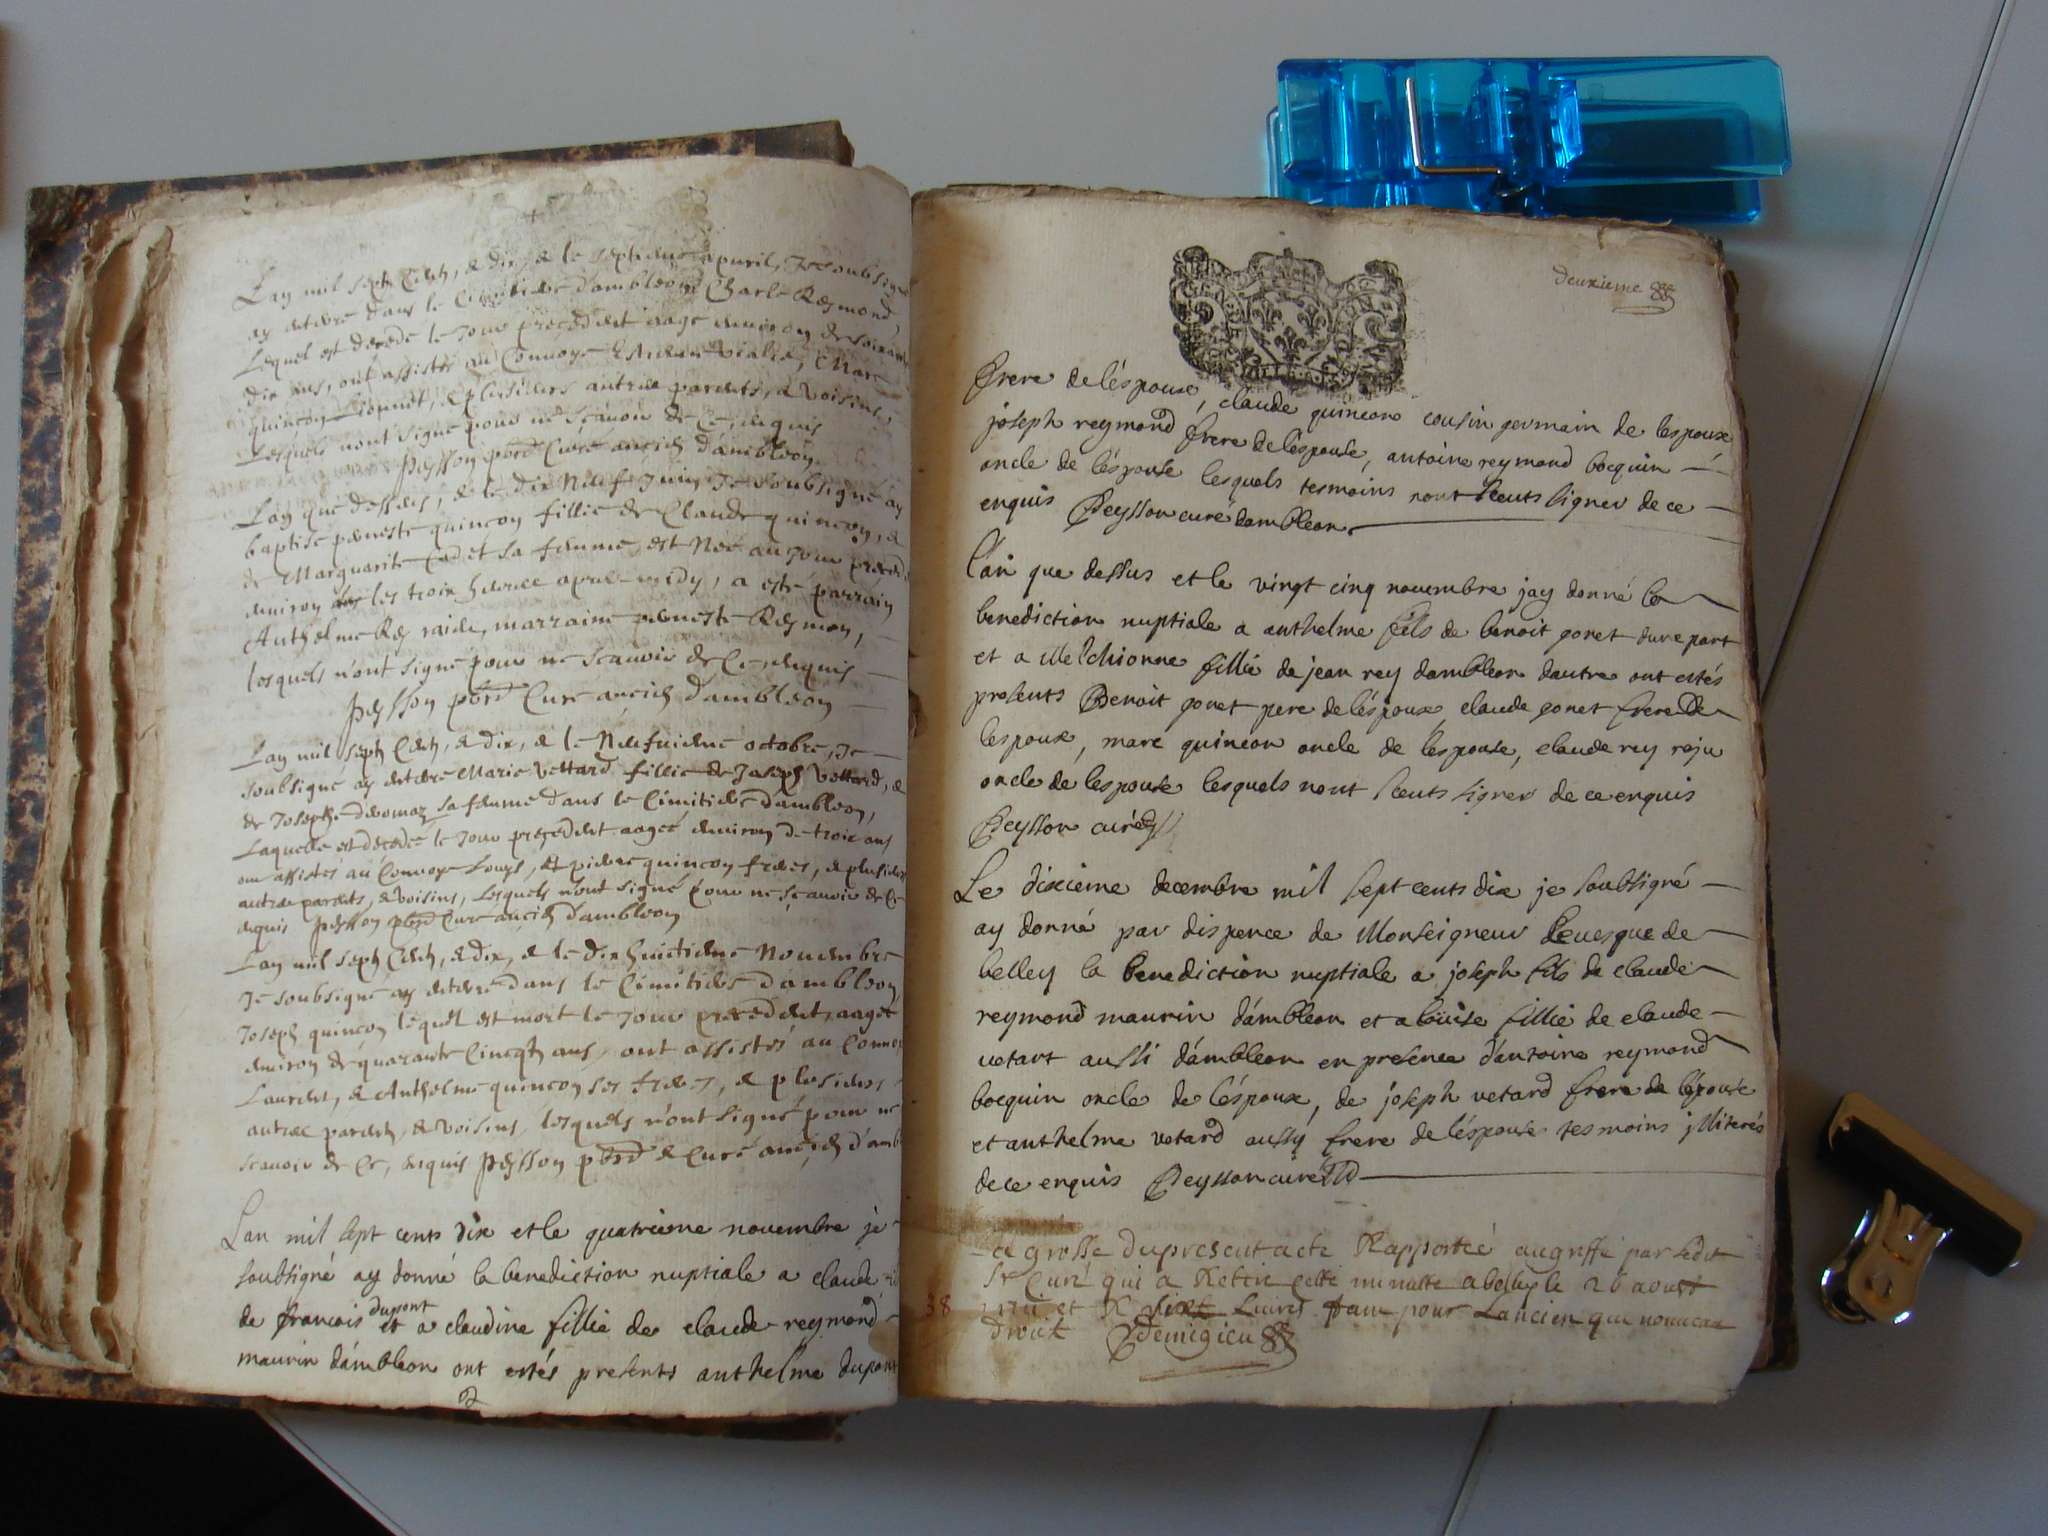 Lan mil sept Cent, & dix, & le septieme apuril, Je soubsigné
ay enterré dans le Cimitiere d'ambleon Charle Reymond,
Lequel est decedé le jour precedent aagé enuiron de soixante
dix ans, ont assistés au Conuoye Marc
quincon & plusieurs autres parents, & voisins,
Lesquels nont signé pour ne scauoir de Ce, enquis
Peysson pbre Curé ancien d'ambleon
Lan que dessus, & le dix Neuf Juin Je soubsigné ay
baptisé perneste quincon fillie de Claude quincon, &
de Marguerite Cadet sa femme, est Née au jour preced
enuiron les trois heures apres midy, a esté parrain
Anthelme Rey marraine perneste Reymon,
lesquels n'ont signé pour ne scauoir de Ce, enquis
Peysson pbre Curé ancien d'ambleon
Lan mil sept Cent, & dix, & le Neufuieme octobre, Je
soubsigné ay enterré Marie Vettard fillie de Joseph Vettard, &
de Josephe sa femme dans le Cimitiere d'ambleon,
Laquelle est decedée le jour precedent aagée enuiron de trois ans
ont assistés au Conuoye Louys, & pierre quincon freres, & plusieurs
autres parents, & voisins, Lesquels n'ont signé pour ne scauoir de Ce
enquis Peysson pbre Curé ancien d'ambleon
Lan mil sept Cent, & dix, & le dix huitieme Nouembre
Je soubsigné ay enterré dans le Cimitiere d'ambleon
Joseph quincon lequel est mort le jour precedent, aagé
enuiron de quarante Cincqt ans, ont assistés au Conuoy
Laurent, & Anthelme quincon ses freres, & plusieurs
autres parents, & voisins, lesquels n'ont signé pour ne
scauoir de Ce, enquis Peysson pbre & Curé ancien d'amb
Lan mil sept cents dix et le quatrieme nouembre je
soubsigné ay donné la benediction nuptiale a claude
de francois dupont et a claudine fillie de claude reymond
maurin dámbleon ont estés presents anthelme dupont
deuxieme
frere de léspouse, claude quincon cousin germain de lespoux
joseph reymond frere de lèspouse, antoine reymond bocquin
oncle de léspouse lesquels tesmoins nont sceuts signer de ce
enquis Peysson curé dambleon.
Lan que dessus et le vingt cinq nouembre jay donné la
benediction nuptiale a anthelme fils de benoit gonet dune part
et a Melchionne fillie de jean rey dambleon dautre ont estés
presents Benoit gonet pere de léspoux, claude gonet frere de
lespoux, marc quincon oncle de lespouse, claude rey roju
oncle de lespouse lesquels nont sceuts signer de ce enquis
Peysson curé
Le dixieme decembre mil sept cents dix je soubsigné
ay donné par dispence de Monseigneur Leuesque de
belley la benediction nuptiale a joseph fils de claude
reymond maurin dámbleon et a loüise fillie de claude
vetart aussi dámbleon en presence dántoine reymond
bocquin oncle de léspoux, de joseph vetard frere de léspouse
et anthelme vetard aussy frere de léspouse tesmoins jlliterés
de ce enquis Peysson curé
La grosse du present acte Rapportée au greffe par ledit
Sr Curé qui a Retiré cette minutte a belley le 26 aoust
1711 et Liures tant pour Lancien que nouueau
droit Demigieu
38